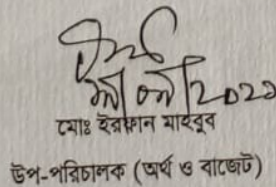 মোঃ ইরফান মাহবুব
উপ-পরিচালক (অর্থ ও বাজেট)